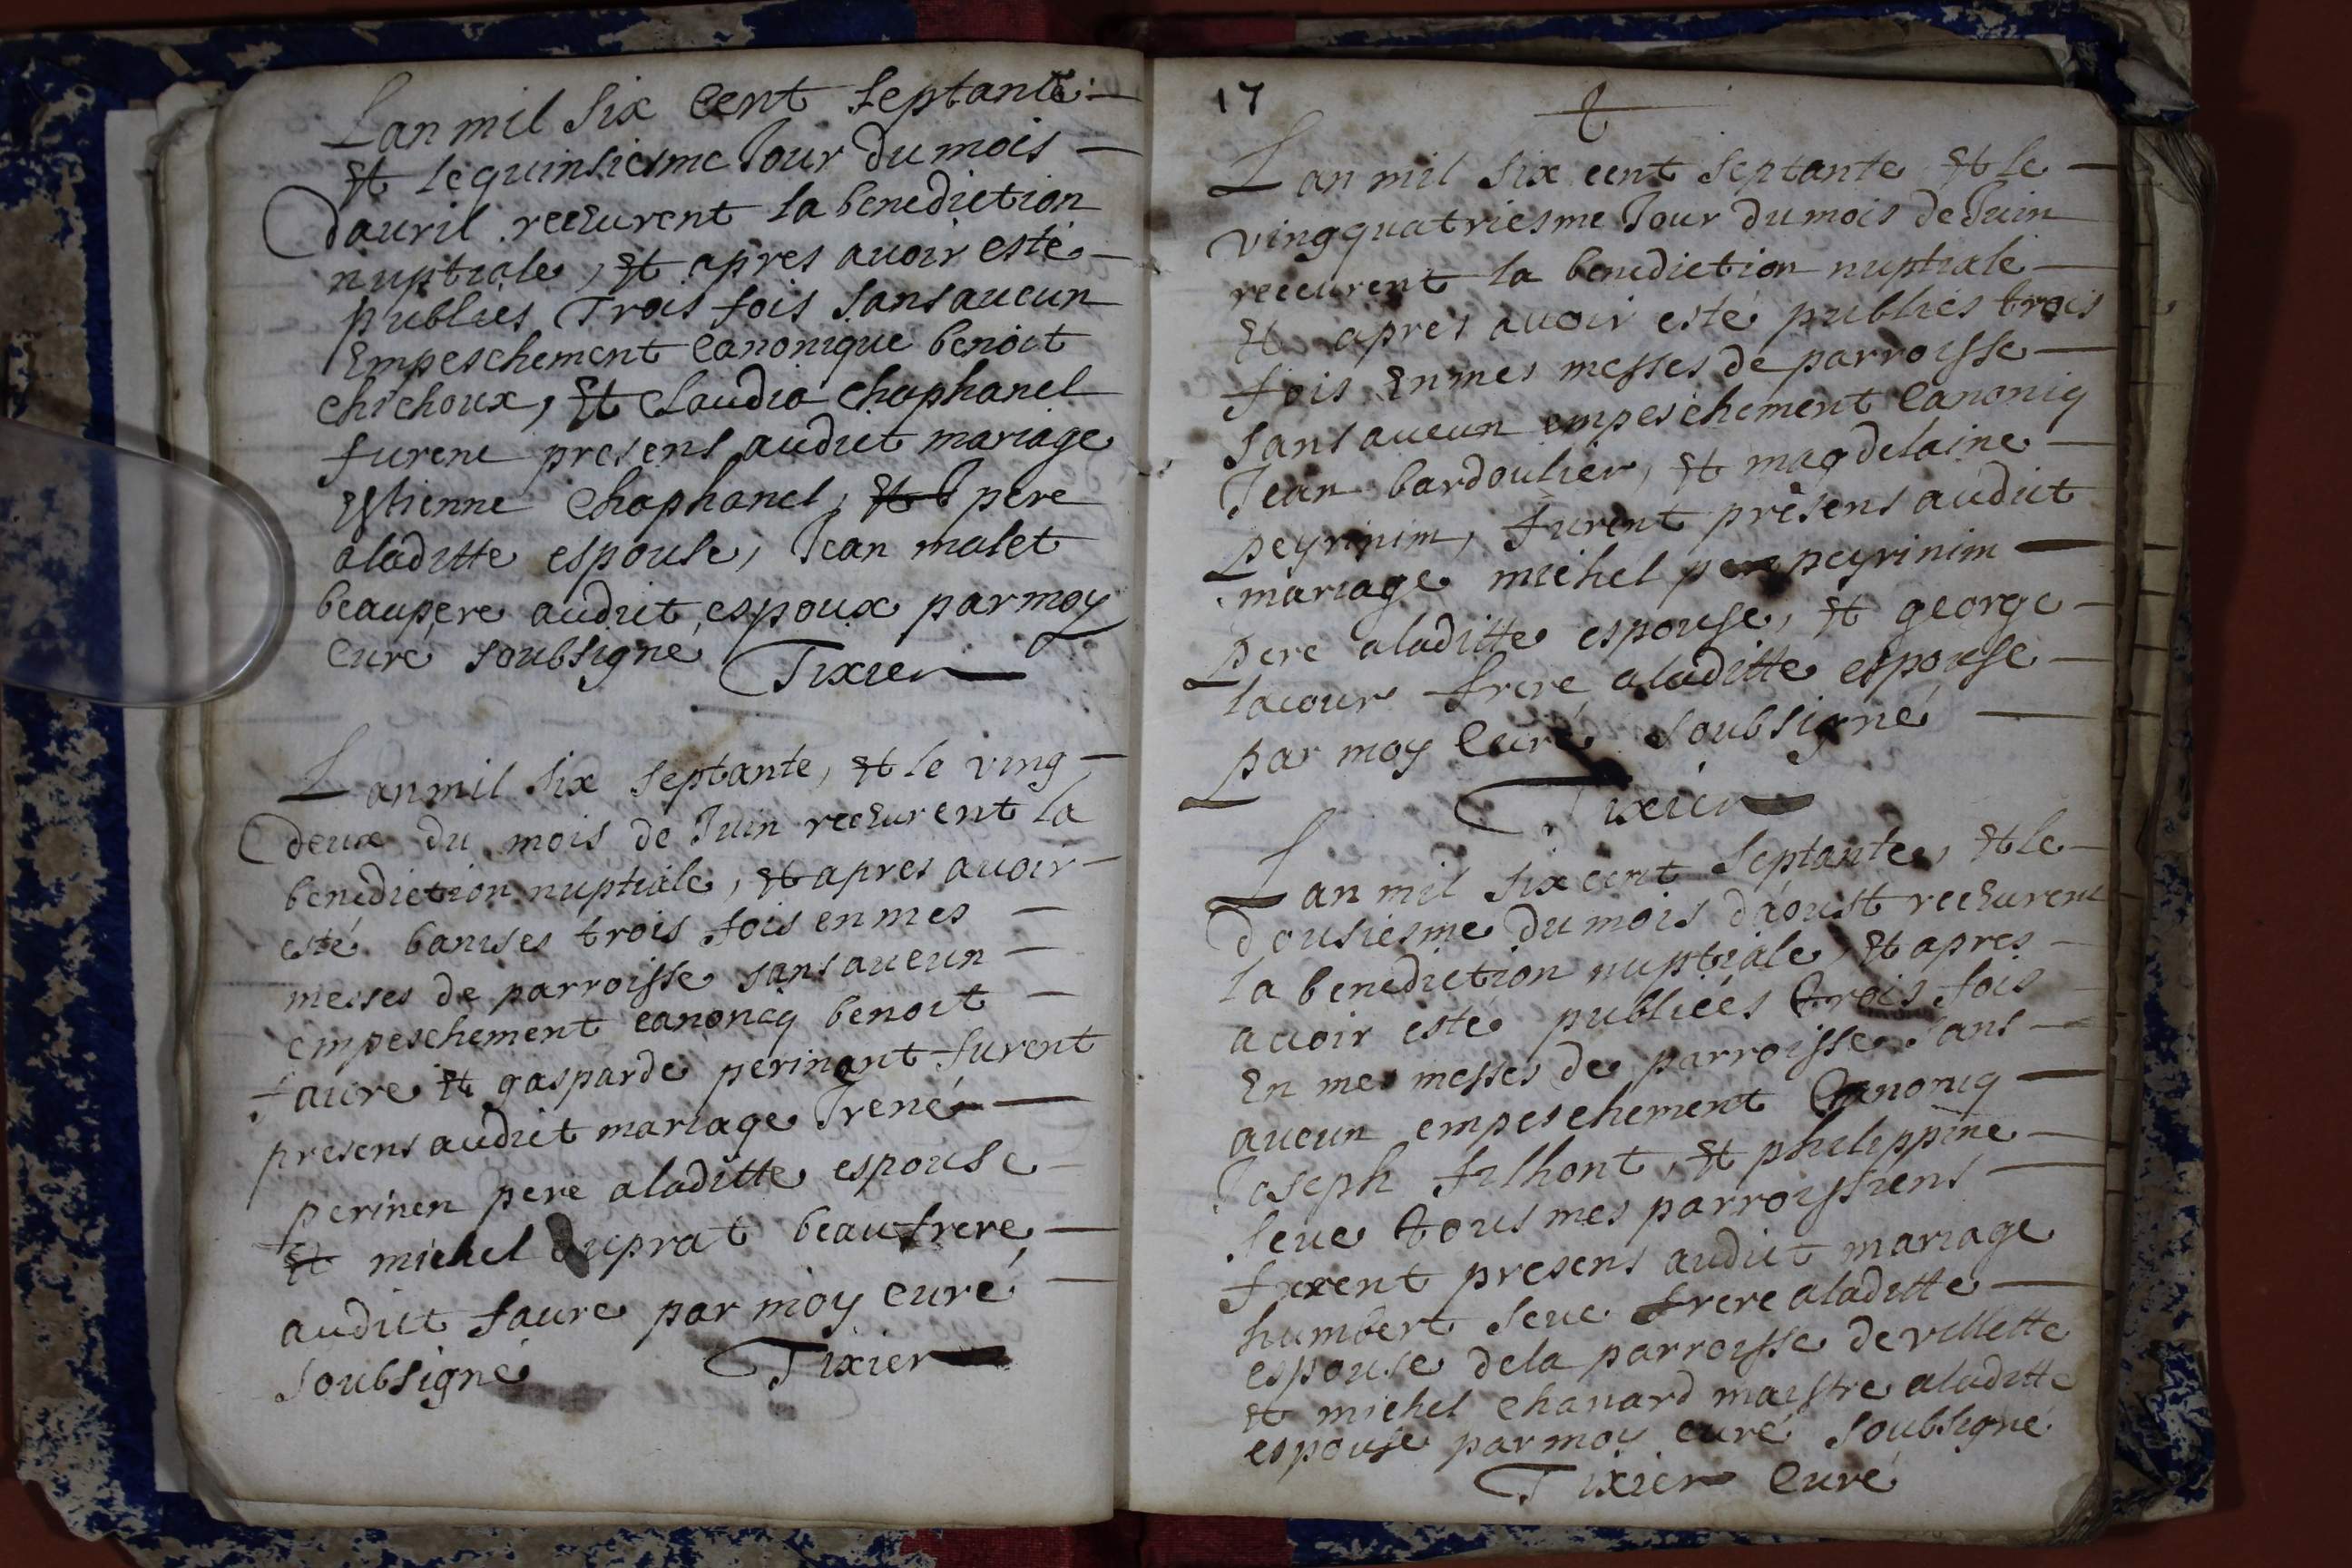 Lan mil six cent septante
Et le quinsiesme Jour du mois
dauril receurent la benediction
nuptiale, Et apres auoir esté
publies Trois fois sans aucun
Empeschement Canonique benoit
chichoux, Et Claudia Chaphanel
furent presens audit mariage
Estienne Chaphanel, pere
aladitte espouse, Jean malet
beaupere audit espoux par moy
Curé soubsigné Tixier
Lan mil six septante, Et le ving
deux du mois de Juin receurent la
benediction nuptiale, Et apres auoir
esté banises trois fois en mes
messes de parroisse sans aucun
empeschement canonicq benoit
faure Et gasparde perinant furent
presens audit mariage Irené
perinen pere aladitte espouse
Et michel duprat beaufrere
audit faure par moy curé
soubsigné Tixier
17
Lan mil six cent septante Et le
vingquatriesme Jour du mois de Juin
receurent la benediction nuptiale
Et apres auoir esté publiés trois
fois En mes messes de parroisse
sans aucun empeschement Canoniq
Jean bardoulier, Et magdelaine
peyrinim, furent presens audit
mariage michel peyrinim
pere aladitte espouse, Et george
lacour frere aladitte espouse
par moy Curé soubsigné
Tixier
Lan mil six cent septante, Et le
dousiesme du mois d'aoust receurent
la benediction nuptiale, Et apres
auoir esté publiées trois fois
En mes messes de parroisse sans
aucun empeschement Canoniq
Joseph filhont, Et philippine
seue tous mes parroissiens
furent presens audit mariage
humbert seue frere aladitte
espouse dela parroisse de villette
Et michel chanard maistre aladitte
espouse par moy curé soubsigné
Tixier Curé